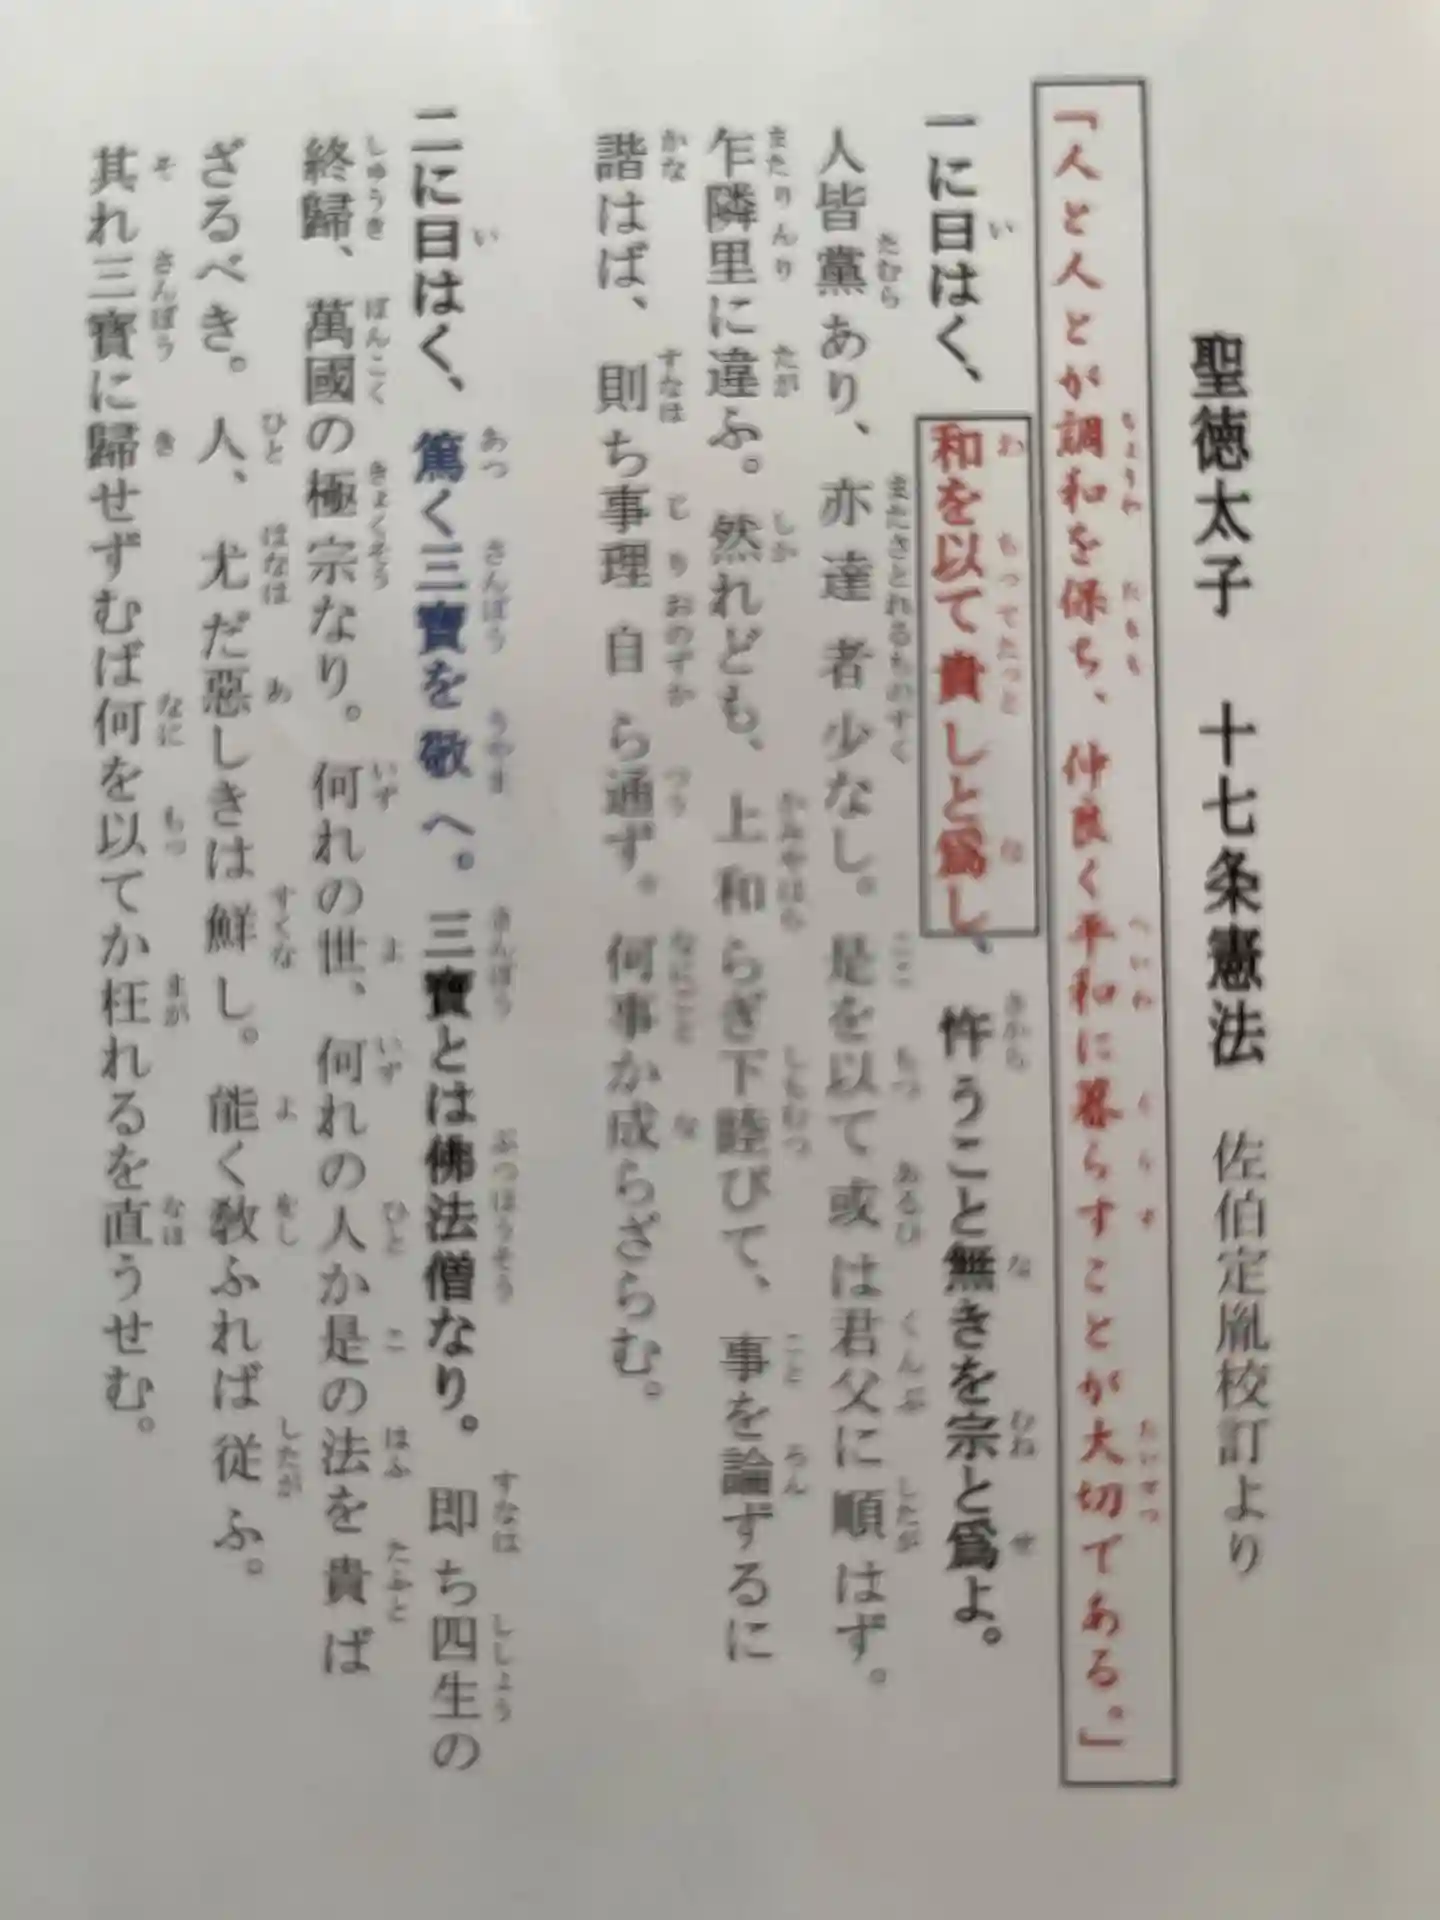 聖徳太子　十七条憲法　佐伯定胤校訂より
「人と人とが調和を保ち、仲良く平和に暮らすことが大切である。」
一に曰はく、和を以て貴しと爲し、忤うこと無きを宗と爲よ。
人皆黨あり、亦達者少なし。是を以て或は君父に順はず。
乍隣里に違ふ。然れども、上和らぎ下睦びて、事を論ずるに
諧はば、則ち事理自ら通ず。何事か成らざらむ。
二に曰はく、篤く三寶を敬へ。三寶とは佛法僧なり。即ち四生の
終歸、萬國の極宗なり。何れの世、何れの人か是の法を貴ば
ざるべき。人、尤だ惡しきは鮮し。能く敎ふれば従ふ。
其れ三寶に歸せずむば何を以てか枉れるを直うせむ。